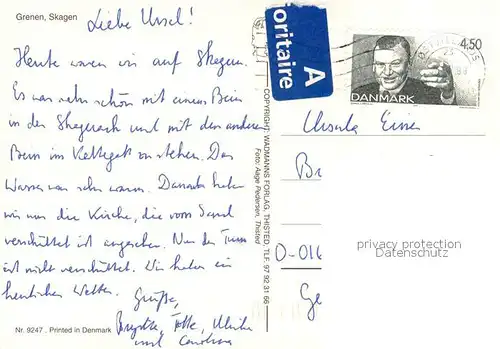 Grenen, Skagen
Liebe Ursel!
Heute waren wir auf Skagen.
Es war sehr schön mit einem Bein
in den Skagerack und mit den anderen
Bein im Kattegatt zu stehen. Das
Wasser war sehr warm. Danach haben
wir uns die Kirche, die vom Sand
verschüttet ist angesehen. Nur der Turm
ist nicht verschüttet. Wir haben ein
herrliches Wetter.
Grüße,
Brigitte, Ulrike
und
Nr. 9247 . Printed in Denmark
COPYRIGHT: WADMANNS FORLAG, THISTED. TLF. 97 92 31 66
Foto: Aage Pedersen, Thisted
oritaire
A
4;50
DANMARK
Ursula
Br
D-016
Ge
privacy protection
Datenschutz